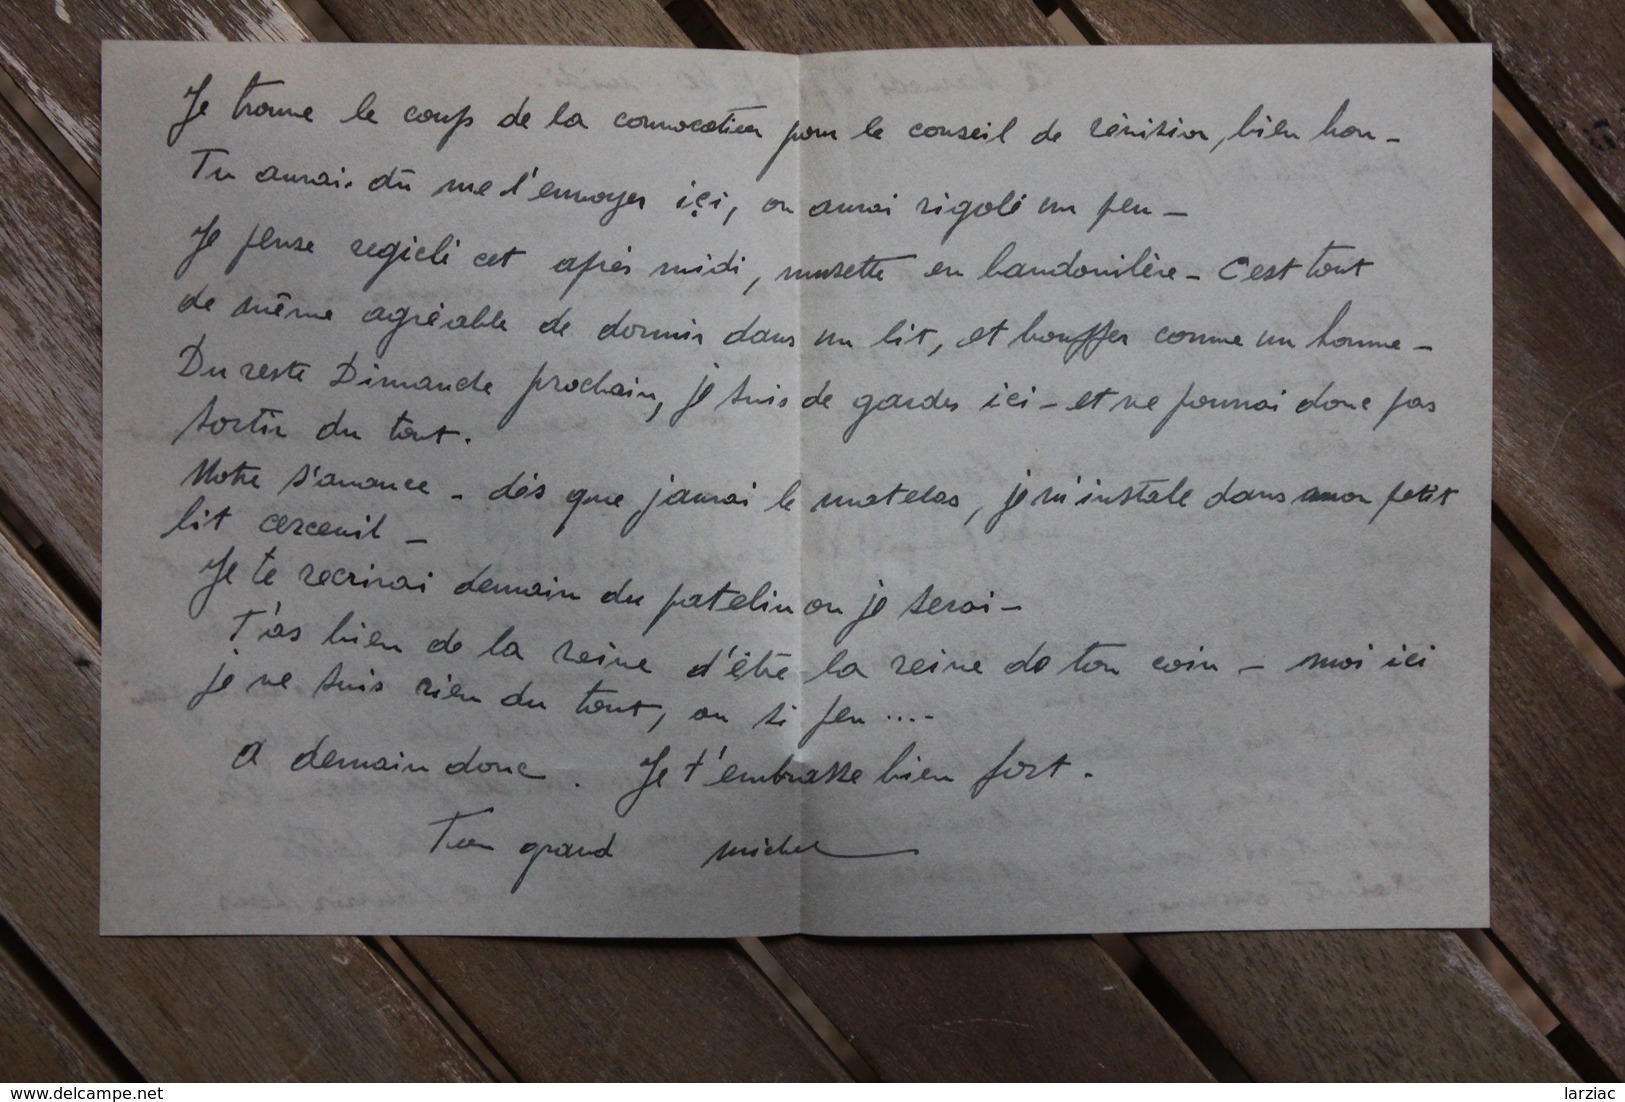 Je trouve le coup de la convocation pour le conseil de révision, bien bon –
Tu aurais dû me l'envoyer içi, on aurai rigolé un peu –
Je pense cet après midi, musette en bandouilère – C'est tout
de même agréable de dormir dans un lit, et bouffer comme un homme –
Du reste Dimanche prochain, je suis de gardes ici – et ne pourrai donc pas
sortir du tout.
Notre s'avance – dès que j'aurai le matelas, je m'installe dans mon petit
lit cerceuil –
Je te recrirai demain du patelin ou je serai –
T'as bien de la veine d'être la reine de ton coin – moi ici
je ne suis rien du tout, ou si peu ....
A demain donc. Je t'embrasse bien fort.
Ton grand Michel
delcampe.net
larziac